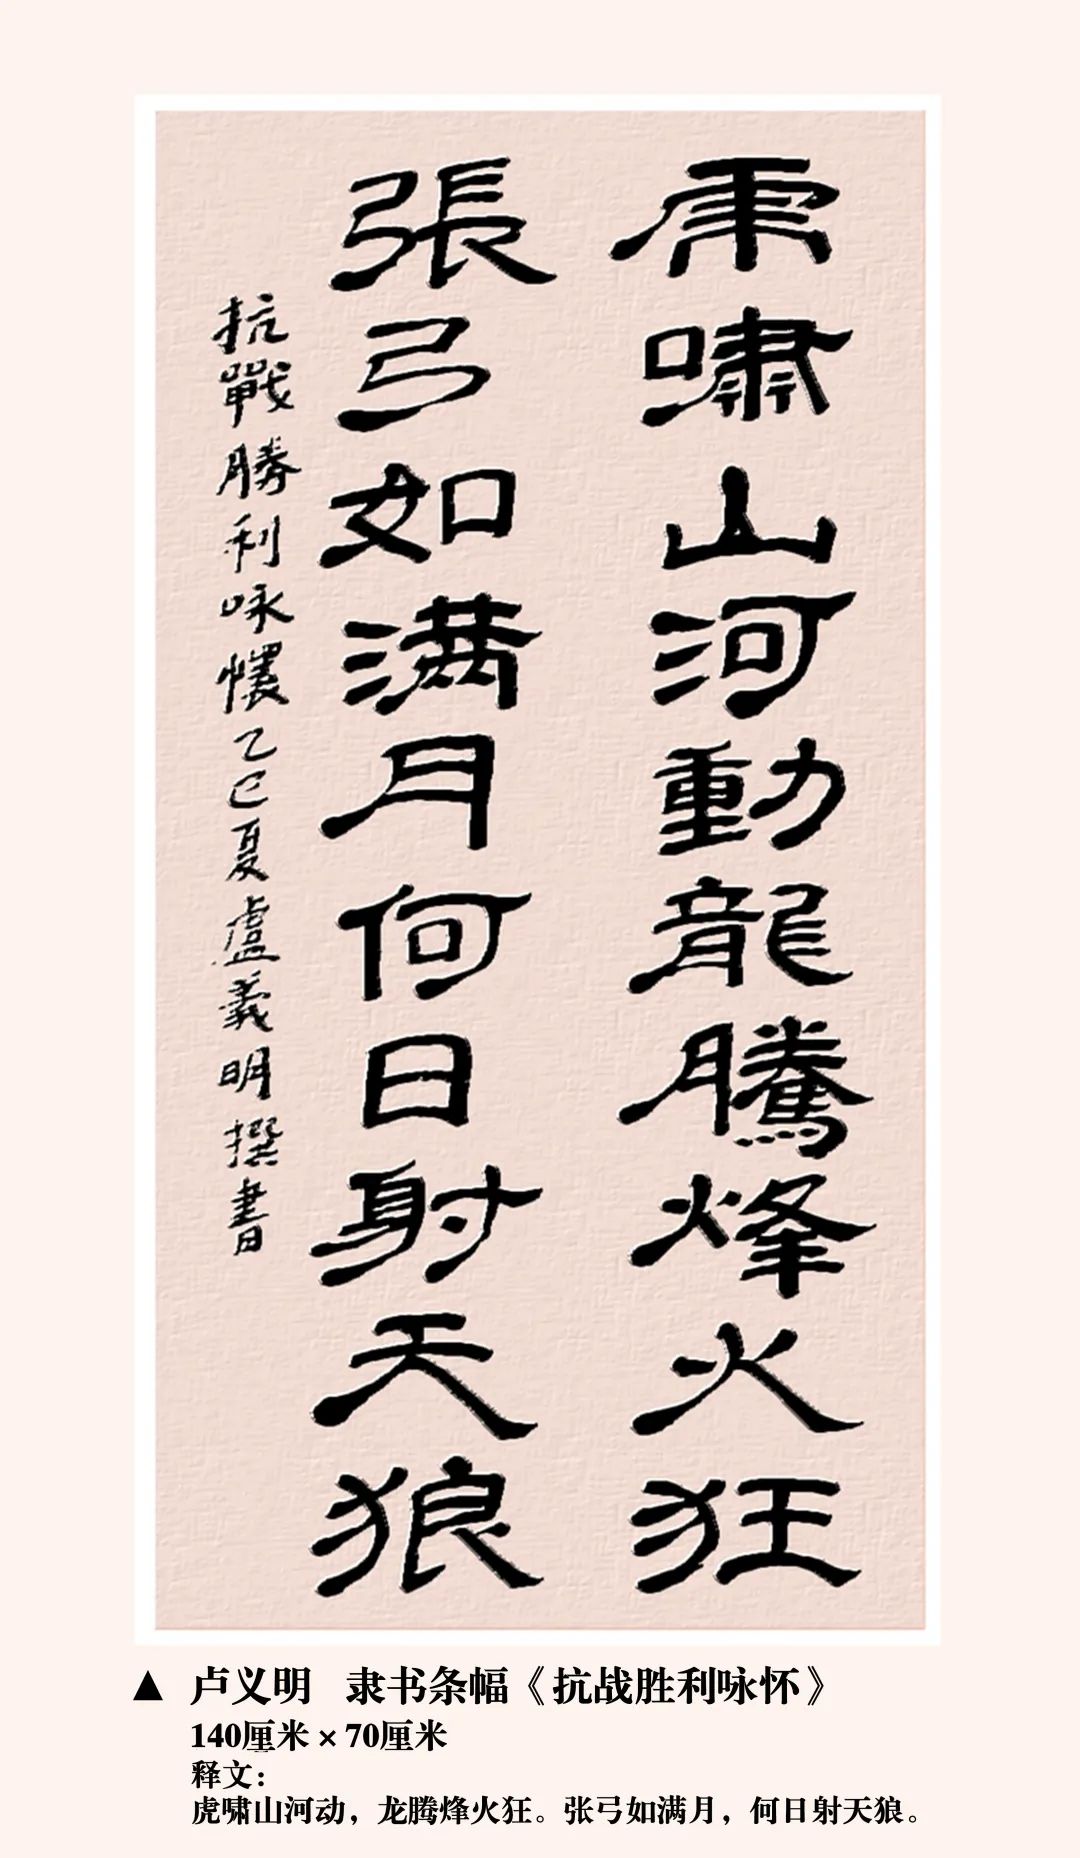 虎嘯山河動龍騰烽火狂
張弓如满月何日射天狼
抗戰勝利咏懷乙巳夏盧義明撰書
▲ 卢义明 隶书条幅《抗战胜利咏怀》
140厘米×70厘米
释文：
虎啸山河动，龙腾烽火狂。张弓如满月，何日射天狼。